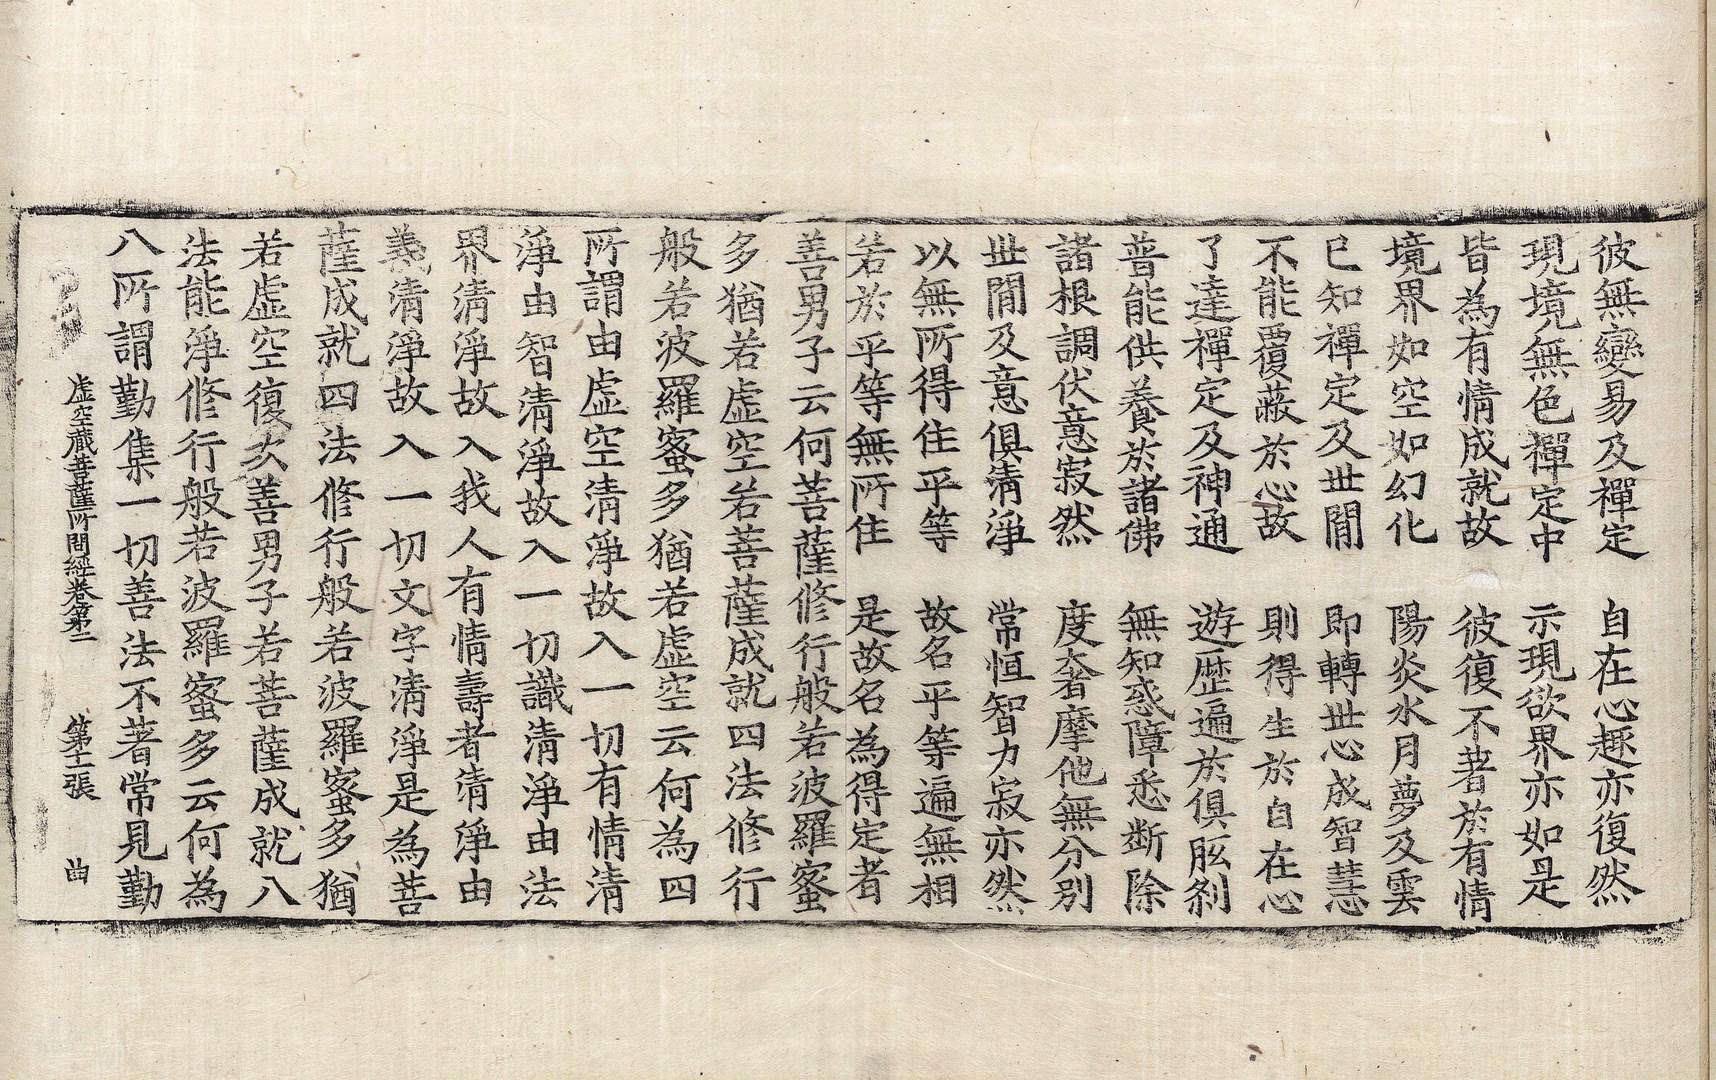 彼無變易及禪定　自在心趣亦復然
現境無色禪定中　示現欲界亦如是
皆為有情成就故　彼復不著於有情
境界如空如幻化　陽炎水月夢及雲
已知禪定及世間　即轉世心成智慧
不能覆蔽於心故　則得生於自在心
了達禪定及神通　遊歷遍於俱胝剎
普能供養於諸佛　無知惑障悉斷除
諸根調伏意寂然　度奢摩他無分別
世間及意俱清淨　常恒智力寂亦然
以無所得住平等　故名平等遍無相
若於平等無所住　是故名為得定者
善男子云何菩薩修行般若波羅蜜
多猶若虛空若菩薩成就四法修行
般若波羅蜜多猶若虛空云何為四
所謂由虛空清淨故入一切有情清
淨由智清淨故入一切識清淨由法
界清淨故入我人有情壽者清淨由
義清淨故入一切文字清淨是為菩
薩成就四法修行般若波羅蜜多猶
若虛空復次善男子若菩薩成就八
法能淨修行般若波羅蜜多云何為
八所謂勤集一切善法不著常見勤
虛空藏菩薩所問經卷第二　第十二張　曲